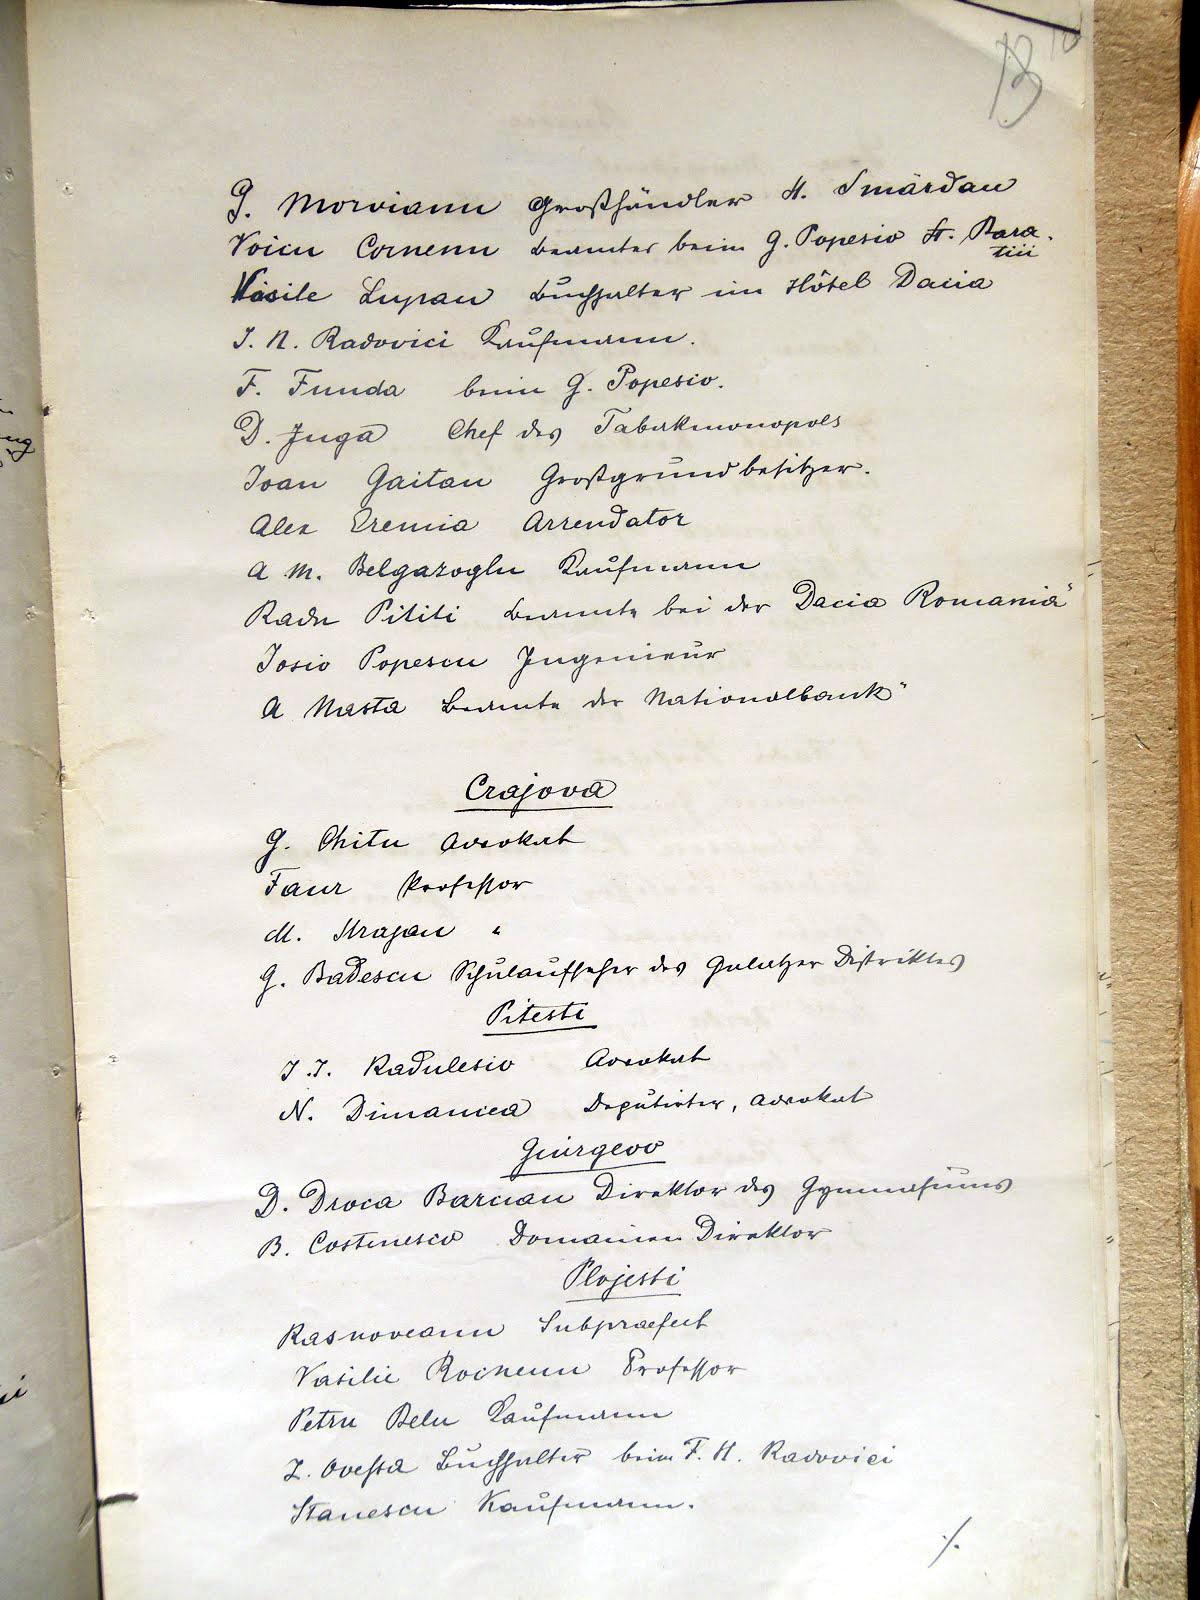 B
G. Moroianu Großhändler St. Smârdan
Voicu Comenu Beamter beim G. Popesco St. Bara
tiii
Vasile Lupan Buchhalter im Hôtel Dacia
I. N. Radovici Kaufmann.
F. Funda beim G. Popesco.
D. Juga Chef des Tabakmonopols
Ioan Gaitan Großgrundbesitzer.
Alex Eremia Arrendator
A M. Belgazoglu Kaufmann
Radu Pititi Beamte bei der Dacia Romania"
Iosio Popescu Ingenieur
A Nasta Beamte der Nationalbank"
Crajova
G. Chitu Advokat
Faur Professor
M. Strajan "
G. Badescu Schulaufseher des Galatzer Distriktes
Pitesti
I. I. Radulesco Advokat
N. Dimancea Deputirter, Advokat
Giurgevo
D. Droca Barcian Direktor des Gymnasiums
B. Costinesco Domainen Direktor
Plojesti
Rasnoveanu Subpraefect
Vasilie Professor
Petru Belu Kaufmann
I. Ovessa Buchhalter beim F. H. Radovici
Stanescu Kaufmann.
./.